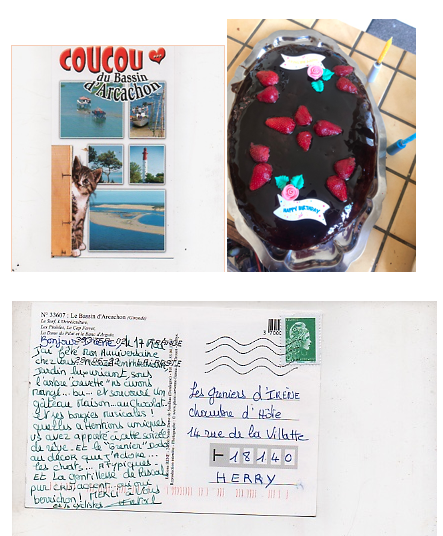 COUCOU
du Bassin
d'Arcachon
HAPPY BIRTHDAY
N° 33607 : Le Bassin d'Arcachon (Gironde)
Le Surf, L'Ostréiculture,
Les Pinèdes, Le Cap Ferret,
La Dune du Pilat et le Banc d'Arguin
Bonjour Irène, le 17
J'ai fêté mon Anniversaire
chez vous
Jardin luxuriant, sous
l'arbre
mangé... bu... et savouré un
gâteau maison... au chocolat
et ses bougies musicales !
quelles attentions uniques !
vs avez apporté à cette soirée
de rêve. Et le "Grenier"
au décor que j'Adore...
les chats... ATypiques
Et la gentillesse de Pascal
pur cru, accent
berrichon ! MERCI à Vous
Les Greniers d'IRÈNE
chambre d'Hôte
14 rue de la Villatte
18140
HERRY